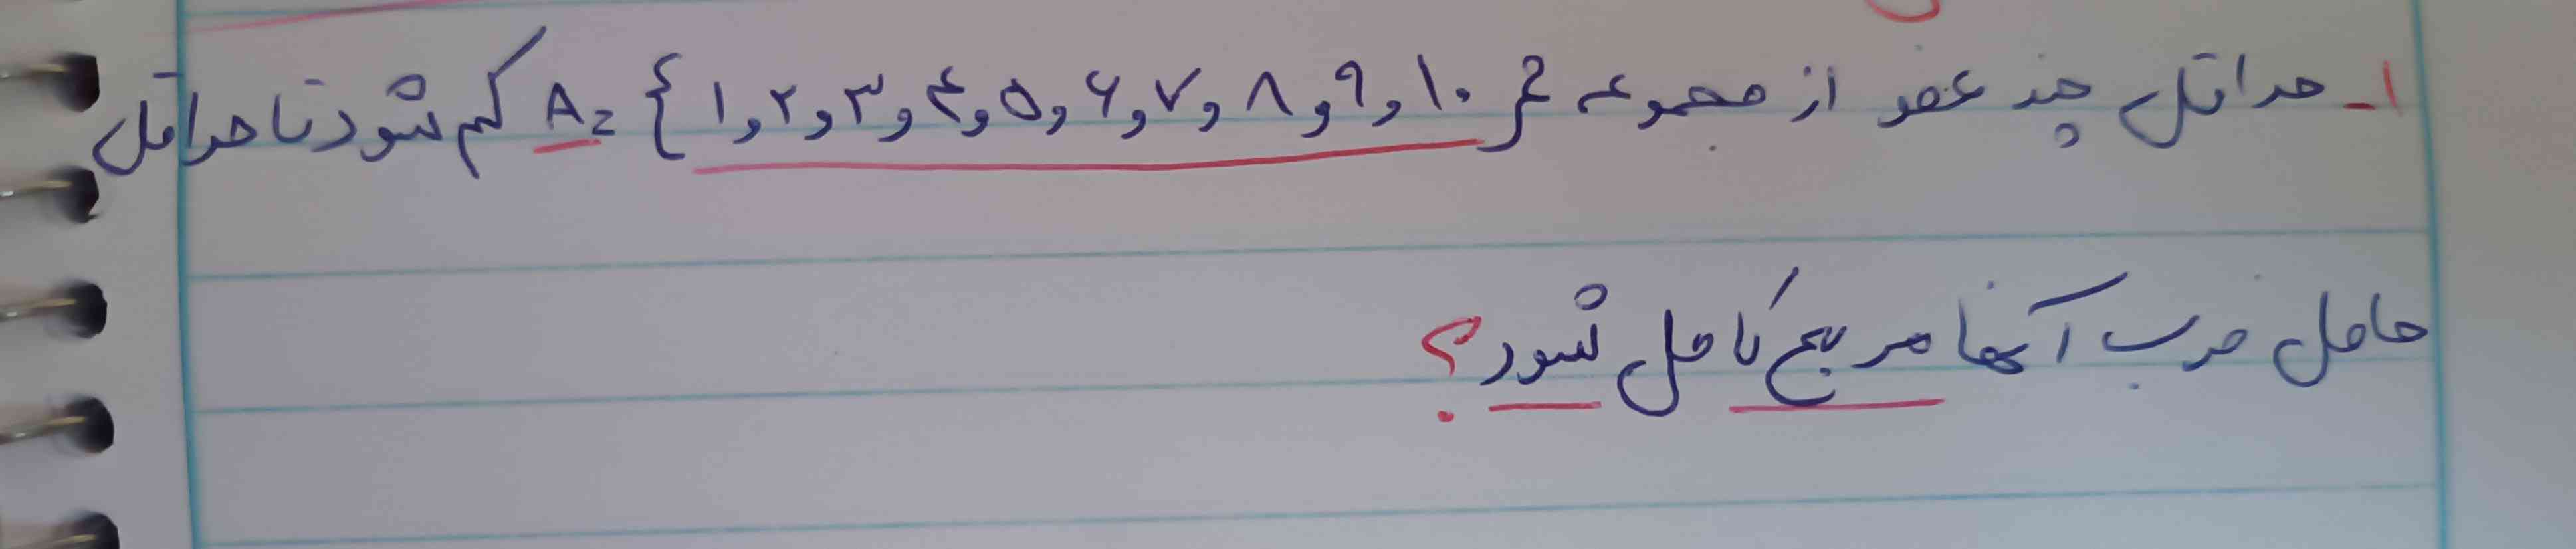 ۱- حداقل چند عضو از مجموعه A = {۱,۲,۳,۴,۵,۶,۷,۸,۹,۱۰} کم شود تا حداقل
حاصل ضرب آنها مربع کامل شود؟